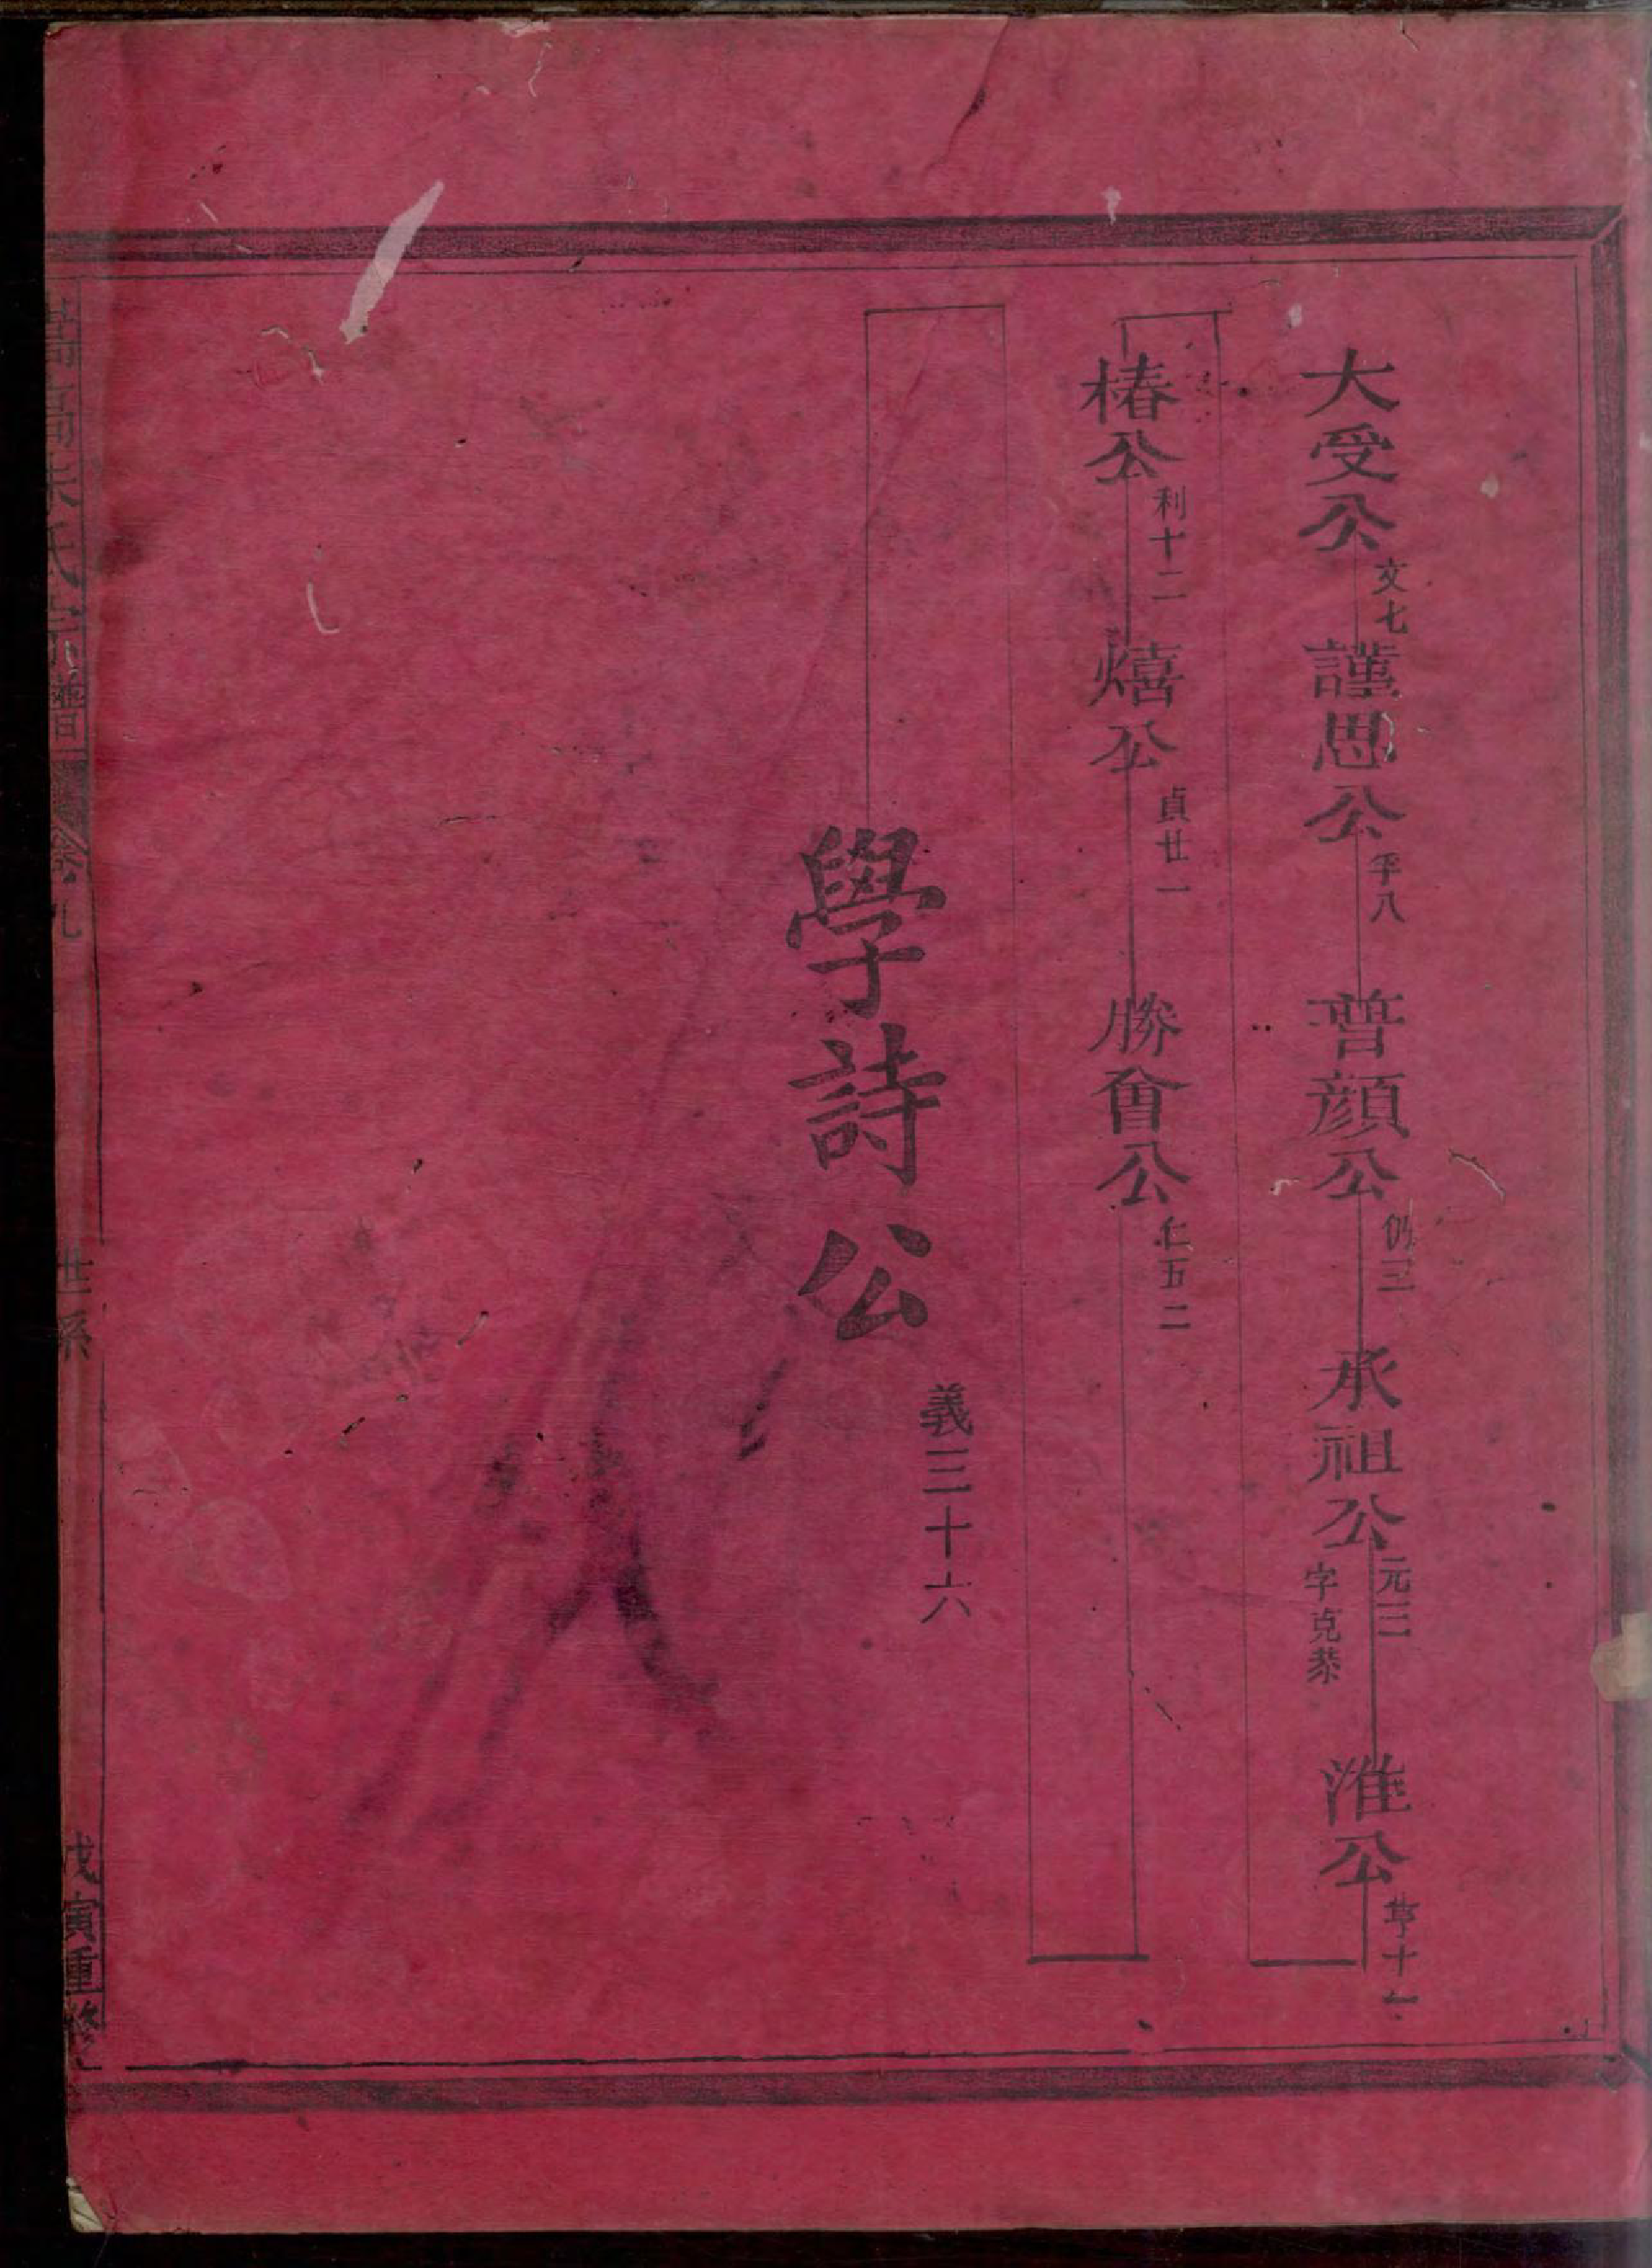 大受公 文七 謹思公 孚八 普顏公 仍三 承祖公 元三 字克恭 淮公 亨十一
椿公 利十二 熺公 貞廿一 勝會公 仁五二
學詩公 義三十六
宗譜 卷九 世系 戊寅重修